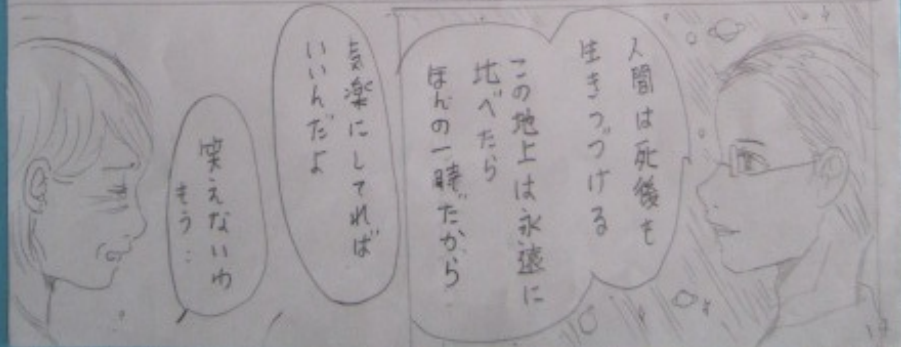 人間は死後も
生きつづける
この地上は永遠に
比べたら
ほんの一時だから
気楽にしてれば
いいんだよ
笑えないわ
もう…